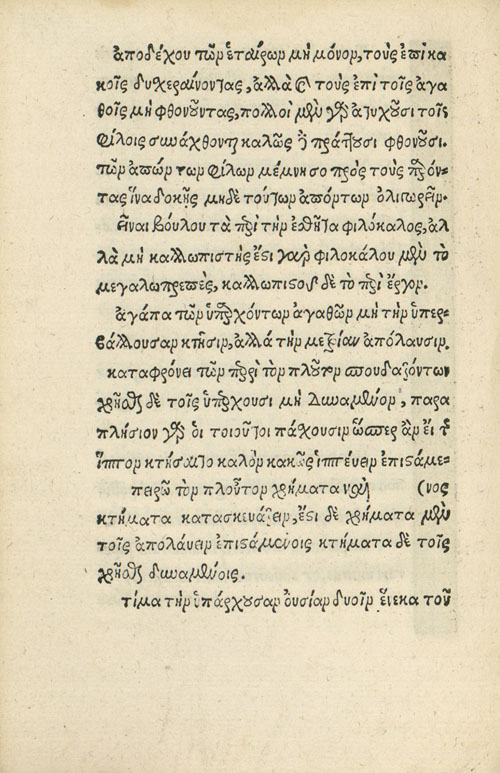 ἀποδέχου τῶν ἑταίρων μὴ μόνον, τοὺς ἐπὶ κα
κοῖς δυχεραίνοντας, ἀλλὰ ϗ τοὺς ἐπὶ τοῖς ἀγα
θοῖς μὴ φθονοῦντας, πολλοὶ μὲν γὰρ ἀτυχοῦσι τοῖς
φίλοις συνάχθονται καλῶς δὲ πράττουσι φθονοῦσι.
τῶν ἀπόντων φίλων μέμνησο πρὸς τοὺς παρόν-
τας ἵνα δοκῇς μηδὲ τούτων ἀπόντων ὀλιγωρεῖν.
εἶναι βούλου τὰ περὶ τὴν ἐσθῆτα φιλόκαλος, ἀλ
λὰ μὴ καλλωπιστής ἔστι γὰρ φιλοκάλου μὲν τὸ
μεγαλοπρεπὲς, καλλωπιστοῦ δὲ τὸ περίεργον.
ἀγάπα τῶν ὑπαρχόντων ἀγαθῶν μὴ τὴν ὑπερ-
βάλλουσαν κτῆσιν, ἀλλὰ τὴν μετρίαν ἀπόλαυσιν.
καταφρόνει τῶν περὶ τὸν πλοῦτον σπουδαζόντων
χρῆσθαι δὲ τοῖς ὑπάρχουσι μὴ δυναμένων, παρα
πλήσιον γὰρ οἱ τοιοῦτοι πάσχουσιν ὥσπερ ἂν εἴ τις
ἵππον κτήσαιτο καλὸν κακῶς ἱππεύειν ἐπιστάμε-
πειρῶ τὸν πλοῦτον χρήματα καὶ (νος
κτήματα κατασκευάζειν, ἔστι δὲ χρήματα μὲν
τοῖς ἀπολαύειν ἐπισταμένοις κτήματα δὲ τοῖς
χρῆσθαι δυναμένοις.
τίμα τὴν ὑπάρχουσαν οὐσίαν δυοῖν ἕνεκα τοῦ